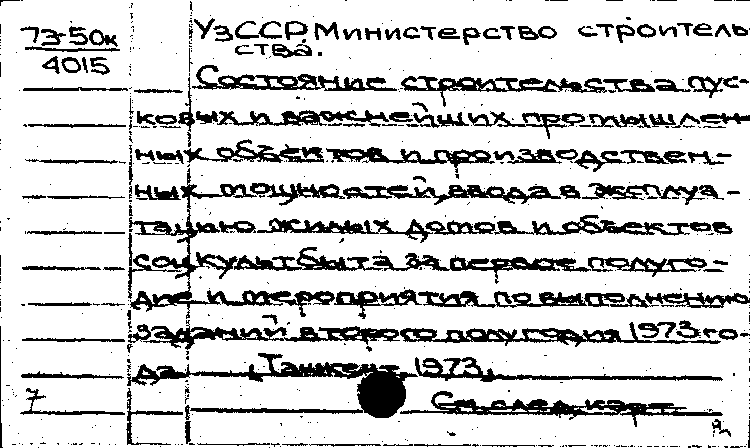 73-50к
4015
УзССР Министерство строитель-
ства.
Состояние строительства пус-
ковых и важнейших промышлен-
ных объектов и производствен-
ных мощностей, ввода в эксплуа-
тацию жилых домов и объектов
соцкультбыта за первое полуго-
дие и мероприятия по выполнению
заданий второго полугодия 1973 го-
да [Ташкент, 1973].
См. след. карт.
7